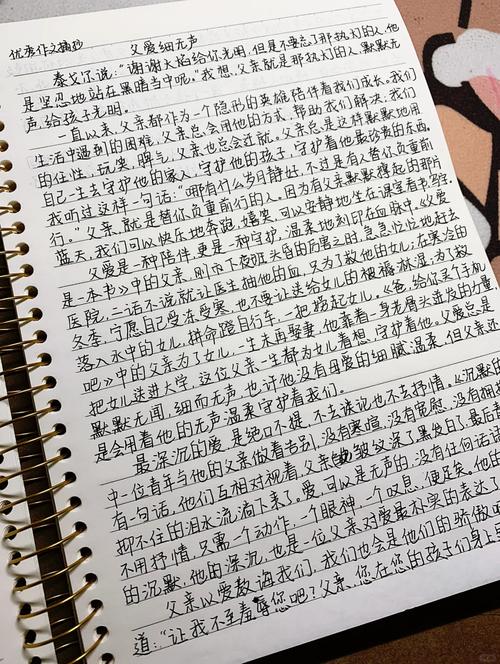 优秀作文摘抄 父爱细无声
泰戈尔说:“谢谢火焰给你光明,但是不要忘了那执灯的人,他
是坚忍地站在黑暗当中呢。”我想,父亲就是那执灯的人,默默无
声,给孩子光明。
一直以来,父亲都作为一个隐形的英雄陪伴着我们成长。我们
生活中遇到的困难,父亲总会用他的方式,帮助我们解决,我们
的任性,玩笑,脾气,父亲也总会迁就。父亲总是这样默默地用
自己一生去守护他的家人,守护他的孩子,守护着他最珍贵的东西。
我听过这样一句话:“哪有什么岁月静好,不过是有人替你负重前
行。”父亲,就是替你负重前行的人,因为有父亲默默撑起的那片
蓝天,我们可以快乐地奔跑,嬉笑,可以安静地坐在课堂看书写字。
父爱是一种陪伴,更是一种守护,温柔地刻印在血脉中。《父爱
是一本书》中的父亲,刚下夜班头昏的厉害之时,急急忙忙地赶去
医院,二话不说就让医生抽他的血,只为了救他的女儿;在寒冷的
冬季,宁愿自己受冻受寒,也不要让送给女儿的被褥淋湿;为了救
落入水中的女儿,拼命蹬自行车,一把捞起女儿。《爸,给你买个手机
吧》中的父亲为了女儿,一生未再娶妻,他靠着一身老骨头迸发的力量
把女儿送进大学,这位父亲一生都为女儿着想,守护着他。父爱总是
默默无闻,细而无声,也许他没有母爱的细腻、温柔,但父亲还
是会用着他的无声温柔守护着我们。
最深沉的爱,是绝口不提,不去谈论也不去抒情。《沉默的
中一位青年与他的父亲做着告别,没有寒暄,没有宽慰,没有拥
有一句话,他们互相对视着,父亲皱纹深了黑发白了,最后
抑不住的泪水流淌下来了。爱,可以是无声的,没有任何话语
不用抒情,只需一个动作,一个眼神,一个叹息,便足矣。他的
的沉默,他的深沉,也是一位父亲对爱最朴实的表达了
父亲以爱教诲我们,我们也会是他们的骄傲吧
道:“让我不至羞辱您吧?父亲,您在您的孩子们身上